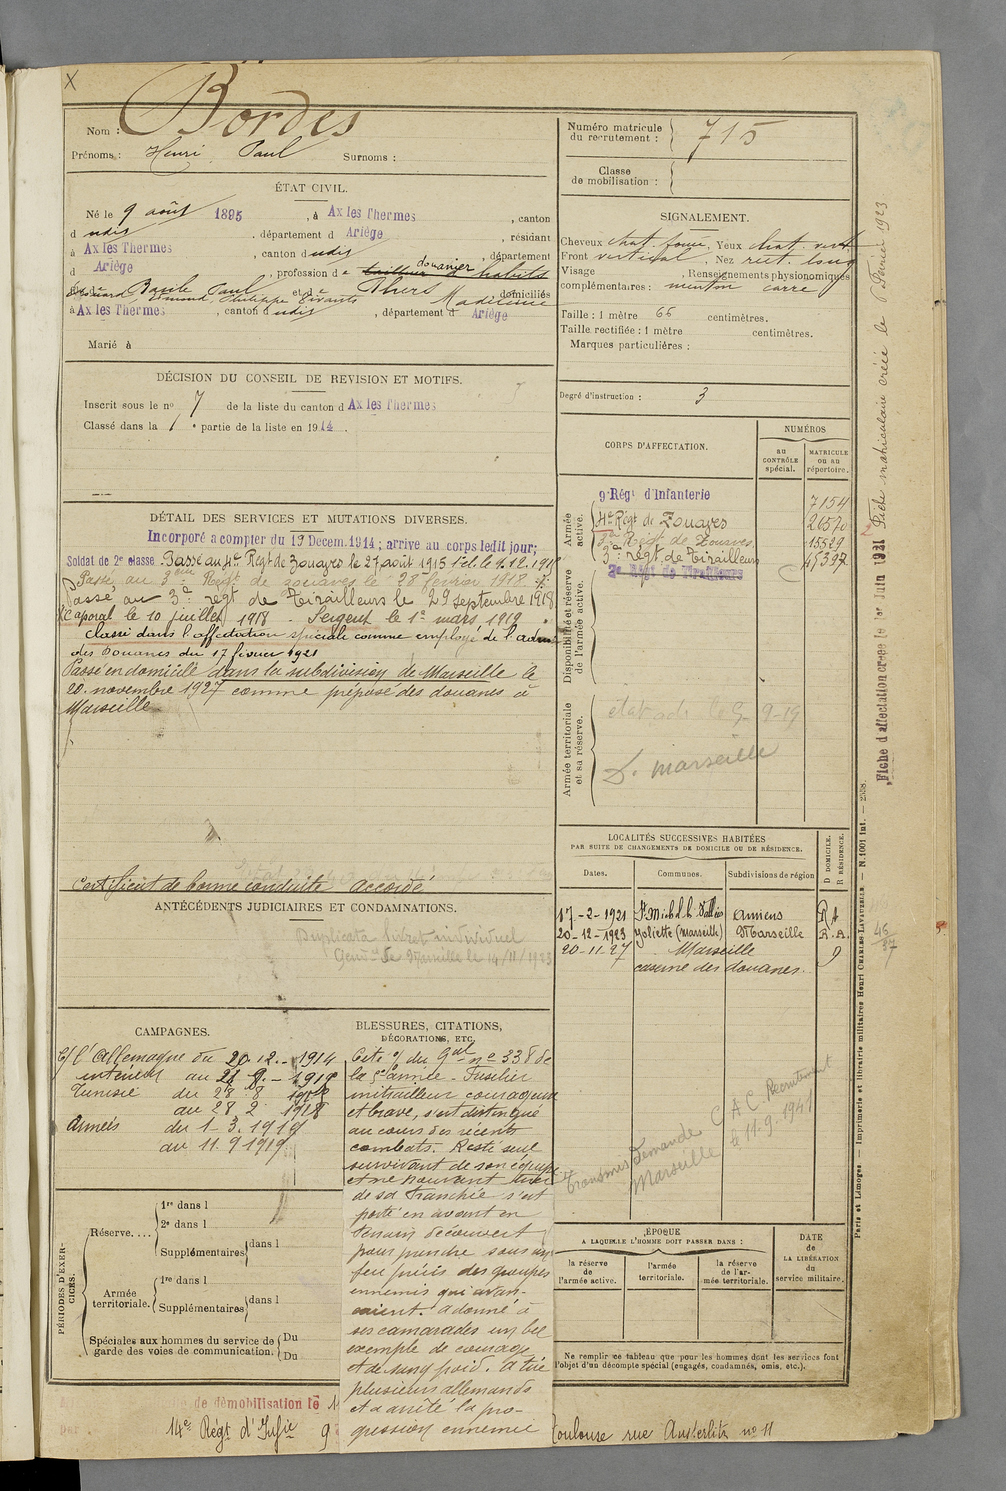 X
Nom : Bordes
Prénoms : Henri Paul Surnoms :
ÉTAT CIVIL.
Né le 9 août 1895, à Ax les Thermes, canton
d udit, département d Ariège, résidant
à Ax les Thermes, canton d udit, département
d Ariège, profession de tailleur d'habits douanier
Paul
Edmond, Philippe Thérs domiciliés
à Ax les Thermes, canton d udit, département d Ariège
Marié à
DÉCISION DU CONSEIL DE REVISION ET MOTIFS.
Inscrit sous le no 7 de la liste du canton d Ax les Thermes
Classé dans la 1e partie de la liste en 1914.
DÉTAIL DES SERVICES ET MUTATIONS DIVERSES.
Incorporé a compter du 19 Decem. 1914; arrivé au corps ledit jour;
Soldat de 2e classe. Passé au 4e Régt de Zouaves le 27 août 1915
Passé au 3ème Régt de zouaves le 28 février 1918
Passé au 3e régt de Tirailleurs le 29 septembre 1918
Caporal le 10 juillet 1918. Sergent le 1er mars 1919.
Classé dans l'affectation spéciale comme employé de l'adm
des Douanes du 17 février 1921
Passé en domicile dans la subdivision de Marseille le
20 novembre 1927 comme préposé des douanes à
Marseille
Certificat de bonne conduite accordé
ANTÉCÉDENTS JUDICIAIRES ET CONDAMNATIONS.
Duplicata livret individuel
Gend. de Marseille le 14/11/1923
CAMPAGNES.
C/ l'Allemagne du 20.12.-1914
intérieur au
Tunisie du 28 8
au 28 2 1918
Armées du 1-3.1919
au 11.9.1919
BLESSURES, CITATIONS,
DÉCORATIONS, ETC.
Cité o/ du Gal no 338 de
la 5e armée - Fusilier
mitrailleur courageux
et brave, s'est distingué
au cours des récents
combats. Resté seul
survivant de son équipe
et ne pouvant tirer
de sa tranchée s'est
porté en avant en
terrain découvert
pour prendre sous un
feu précis des groupes
ennemis qui avan-
çaient. a donné à
ses camarades un bel
exemple de courage
et de sang froid. A tué
plusieurs allemands
et a arrêté la pro-
gression ennemie
PÉRIODES D'EXER-
CICES.
Réserve....
1re dans l
2e dans l
Supplémentaires dans l
Armée
territoriale.
1re dans l
Supplémentaires dans l
Spéciales aux hommes du service de
garde des voies de communication.
Du
Du
de démobilisation le
14e Régt d'Infie
Toulouse rue Austerlitz no 11
Numéro matricule
du recrutement : 715
Classe
de mobilisation :
SIGNALEMENT.
Cheveux chat. foncé, Yeux chat. vert
Front vertical, Nez rect. long
Visage , Renseignements physionomiques
complémentaires : menton carré
Taille : 1 mètre 66 centimètres.
Taille rectifiée : 1 mètre centimètres.
Marques particulières :
Degré d'instruction : 3
CORPS D'AFFECTATION.
NUMÉROS
au
CONTRÔLE
spécial.
MATRICULE
ou au
répertoire.
Armée
active.
9e Régt d'Infanterie 7154
4e Régt de Zouaves 20570
3e Régt de Zouaves 15529
3e régt de Tirailleurs
3e Régt de Tirailleurs
Disponibilité et réserve
de l'armée active.
Armée territoriale
et sa réserve.
D. Marseille
LOCALITÉS SUCCESSIVES HABITÉES
PAR SUITE DE CHANGEMENTS DE DOMICILE OU DE RÉSIDENCE.
Dates. Communes. Subdivisions de région
D DOMICILE.
R RÉSIDENCE.
17-2-1921 Amiens R A
20-12-1923 Joliette (Marseille) Marseille R.A.
20-11-27 Marseille D
caserne des douanes.
Transmis Demande C A C Recrutement
Marseille le 11-9-1941
ÉPOQUE
A LAQUELLE L'HOMME DOIT PASSER DANS :
la réserve
de
l'armée active.
l'armée
territoriale.
la réserve
de l'ar-
mée territoriale.
DATE
de
LA LIBÉRATION
du
service militaire.
Ne remplir ce tableau que pour les hommes dont les services font
l'objet d'un décompte spécial (engagés, condamnés, omis, etc.).
Fiche d'affectation creee le 1er Juin 1931
Fiche matriculaire créée le 6 Février 1923
Paris et Limoges. — Imprimerie et librairie militaires Henri CHARLES-LAVAUZELLE. — N. 1001 int. — 2558.
46
37